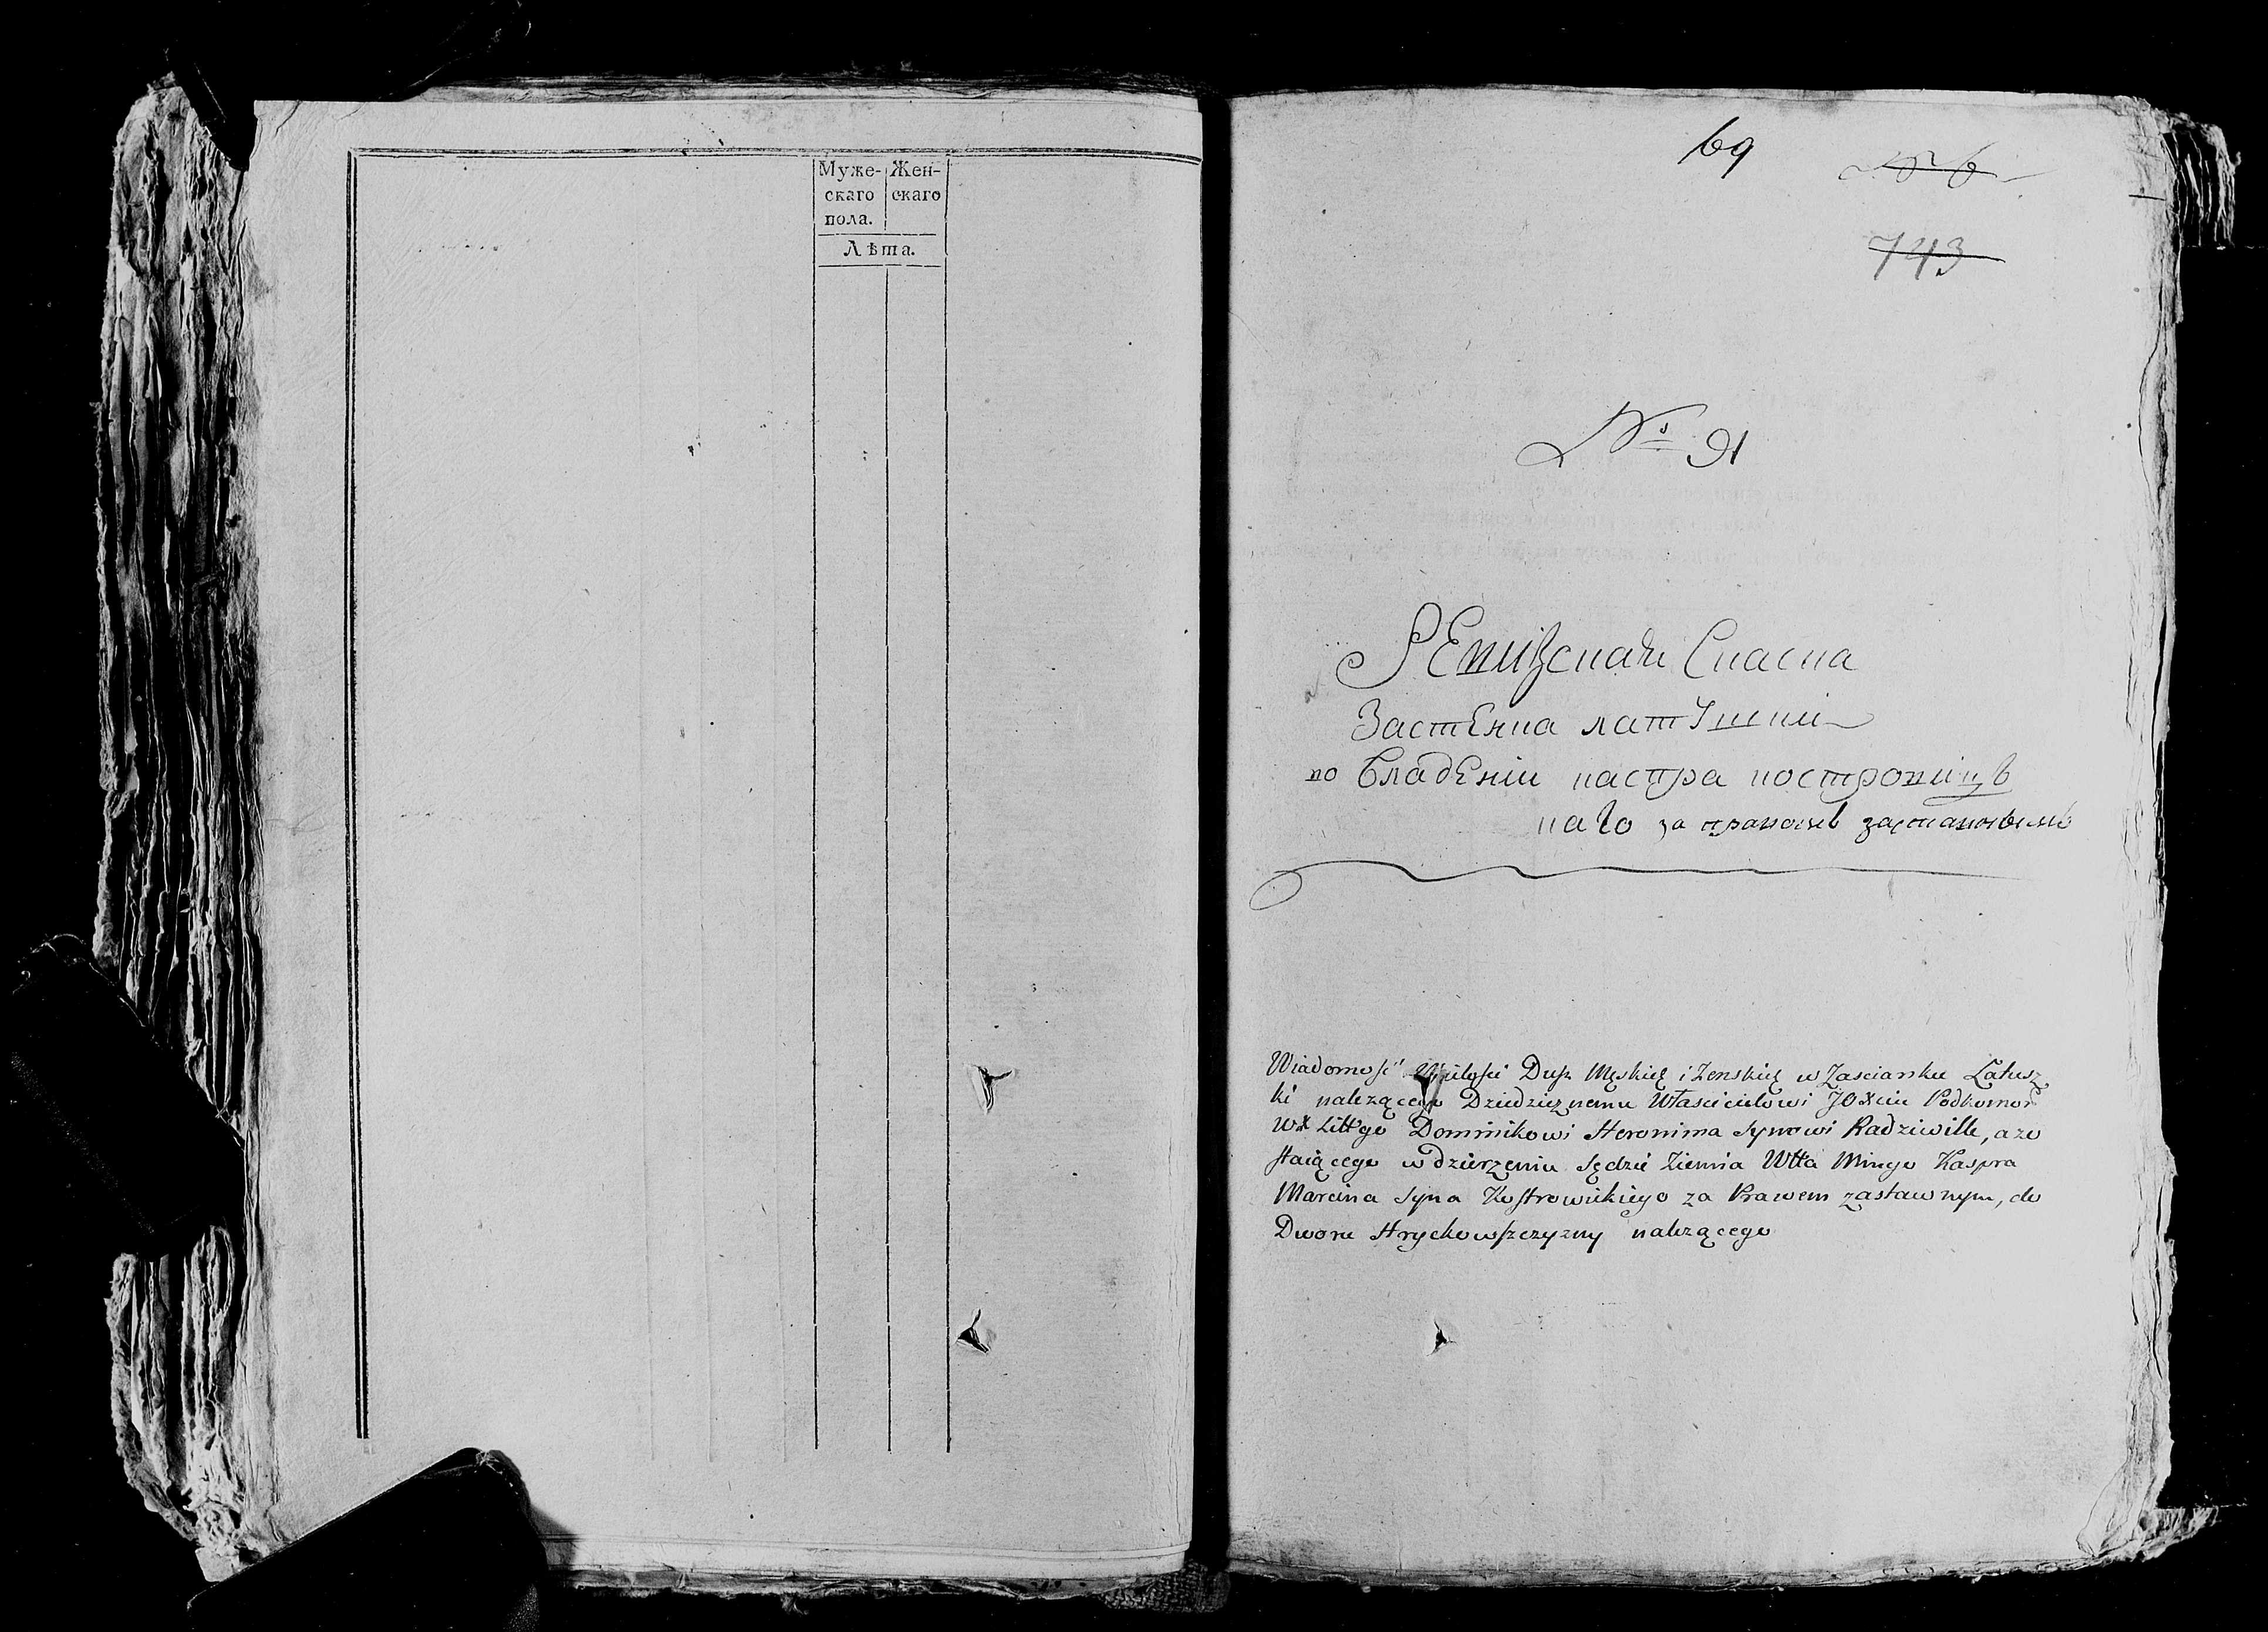 Муже-
скаго
пола.
Жен-
скаго
Лѣта.
69
№ 6
743
№ 91
Ревизская Сказка
Застенка латушки
во владении каспра костровиц
каго за правомъ заставнымъ
Wiadomość Dusz Męskię i Zenskię w Zascianku Łatusz
ki należącego Dziedzicznemu Własicielowi JOXciu Podkomor
WX Littgo Dominikowi Heronima Synowi Radziwille, a zo
staiącego w dzierzeniu Sędzie Ziemia Wtta Mingo Kaspra
Marcina Syna Kostrowickiego za Prawem zastawnym, do
Dworu Hryckowszczyzny należącego